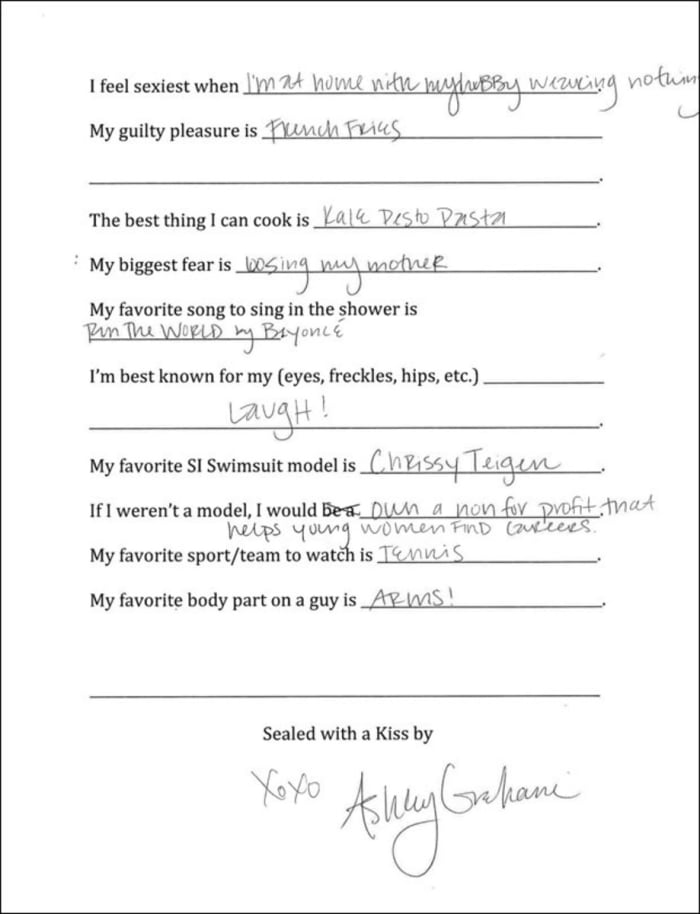 I feel sexiest when I'm at home with my huBBy wearing nothing
My guilty pleasure is French Fries
.
The best thing I can cook is Kale Pesto Pasta.
: My biggest fear is loosing my mother.
My favorite song to sing in the shower is
Run The WORLD by Beyoncé
I'm best known for my (eyes, freckles, hips, etc.)
Laugh!.
My favorite SI Swimsuit model is Chrissy Teigen.
If I weren't a model, I would be a own a non for profit. that
helps young women Find careers.
My favorite sport/team to watch is Tennis.
My favorite body part on a guy is ARMS!.
Sealed with a Kiss by
XoXo Ashley Graham